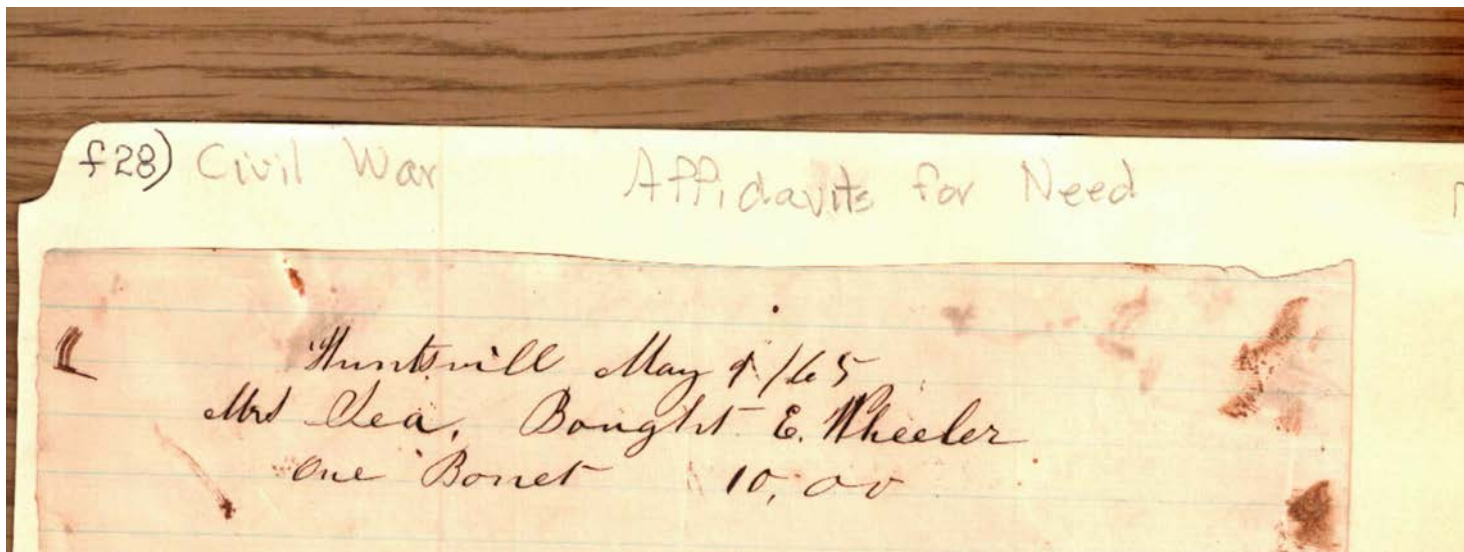 f28) Civil War Affidavits for Need
Huntsvill May 9/65
Mrs Lea, Bought E. Wheeler
One Bonet 10,00